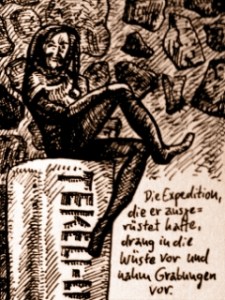 Die Expedition,
die er ausge-
rüstet hatte,
drang in die
Wüste vor und
nahm Grabungen
vor.